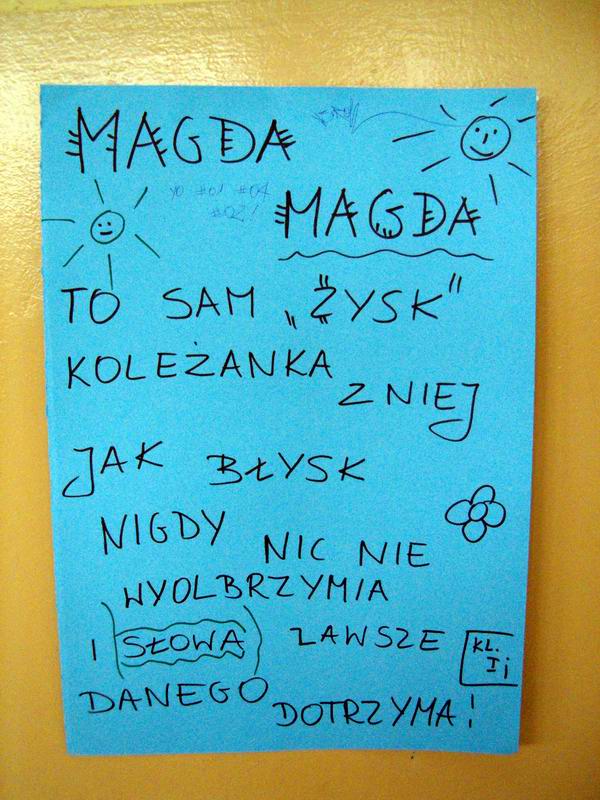 MAGDA
YO #01 #04
#02!
MAGDA
TO SAM „ŻYSK"
KOLEŻANKA
Z NIEJ
JAK BŁYSK
NIGDY NIC NIE
WYOLBRZYMIA
I SŁOWA ZAWSZE
KL.
I i
DANEGO
DOTRZYMA!